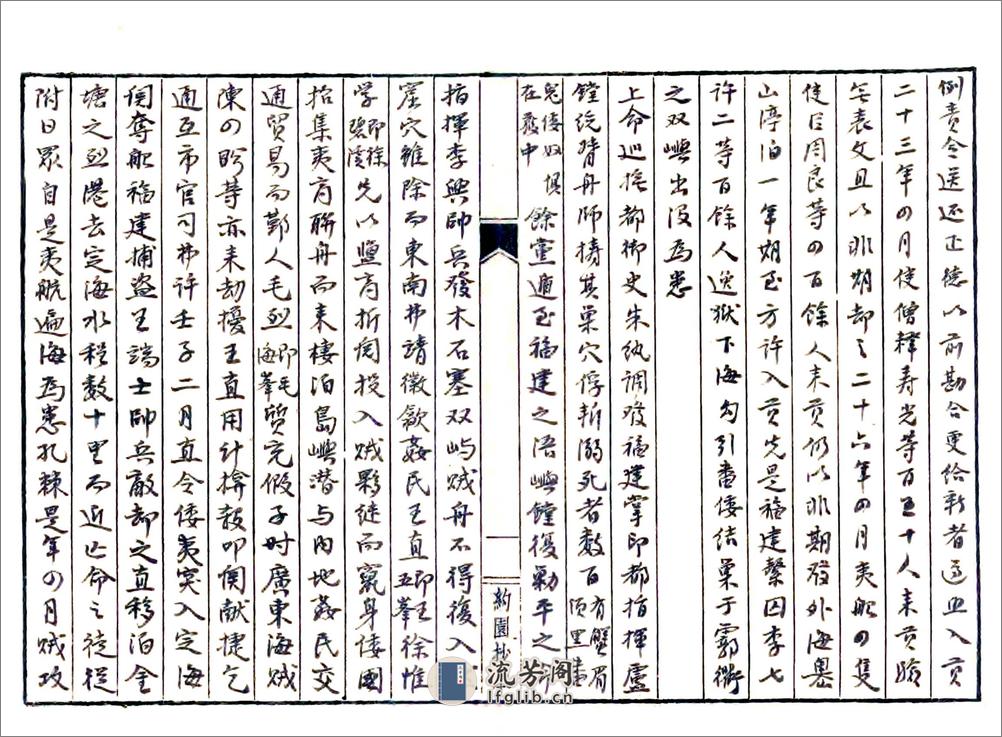 例責令送还正德以前勘合更给新者遇 入貢
二十三年四月使僧釋寿光等百五十人来貢驗
無表文且以非期却之二十六年四月夷船四隻
使臣周良等四百餘人来貢仍以非期發外海嶴
山停泊一年期至方許入貢先是福建繫囚李七
許二等百餘人逸狱下海勾引番倭结巢于霩𩇕
之双嶼出没爲患
上命巡按都御史朱纨調發福建掌印都指揮盧
鏜统督舟師擣其巢穴俘斬溺死者数百有蟹眉須黑番
鬼倭奴俱在獲中餘黨遁至福建之浯嶼鏜復勦平之
指揮李興帥兵發木石塞双屿贼舟不得復入
窟穴雖除而東南弗靖徽歙姦民王直即王五峯徐惟
学即徐碧溪先以鹽商折阅投入贼夥继而竄身倭國
招集夷商聯舟而来棲泊島嶼潜与内地姦民交
通貿易而鄞人毛烈即毛海峯質充假子时廣東海贼
陳四盼等亦来劫擾王直用计掩殺叩関献捷乞
通互市官司弗许壬子二月直令倭夷突入定海
関奪船福建捕盗王端士帥兵敵却之直移泊金
塘之烈港去定海水程数十里而近亡命之徒從
附日眾自是夷航遍海爲患孔棘是年四月贼攻
約園抄
流芳阁
lfglib.cn